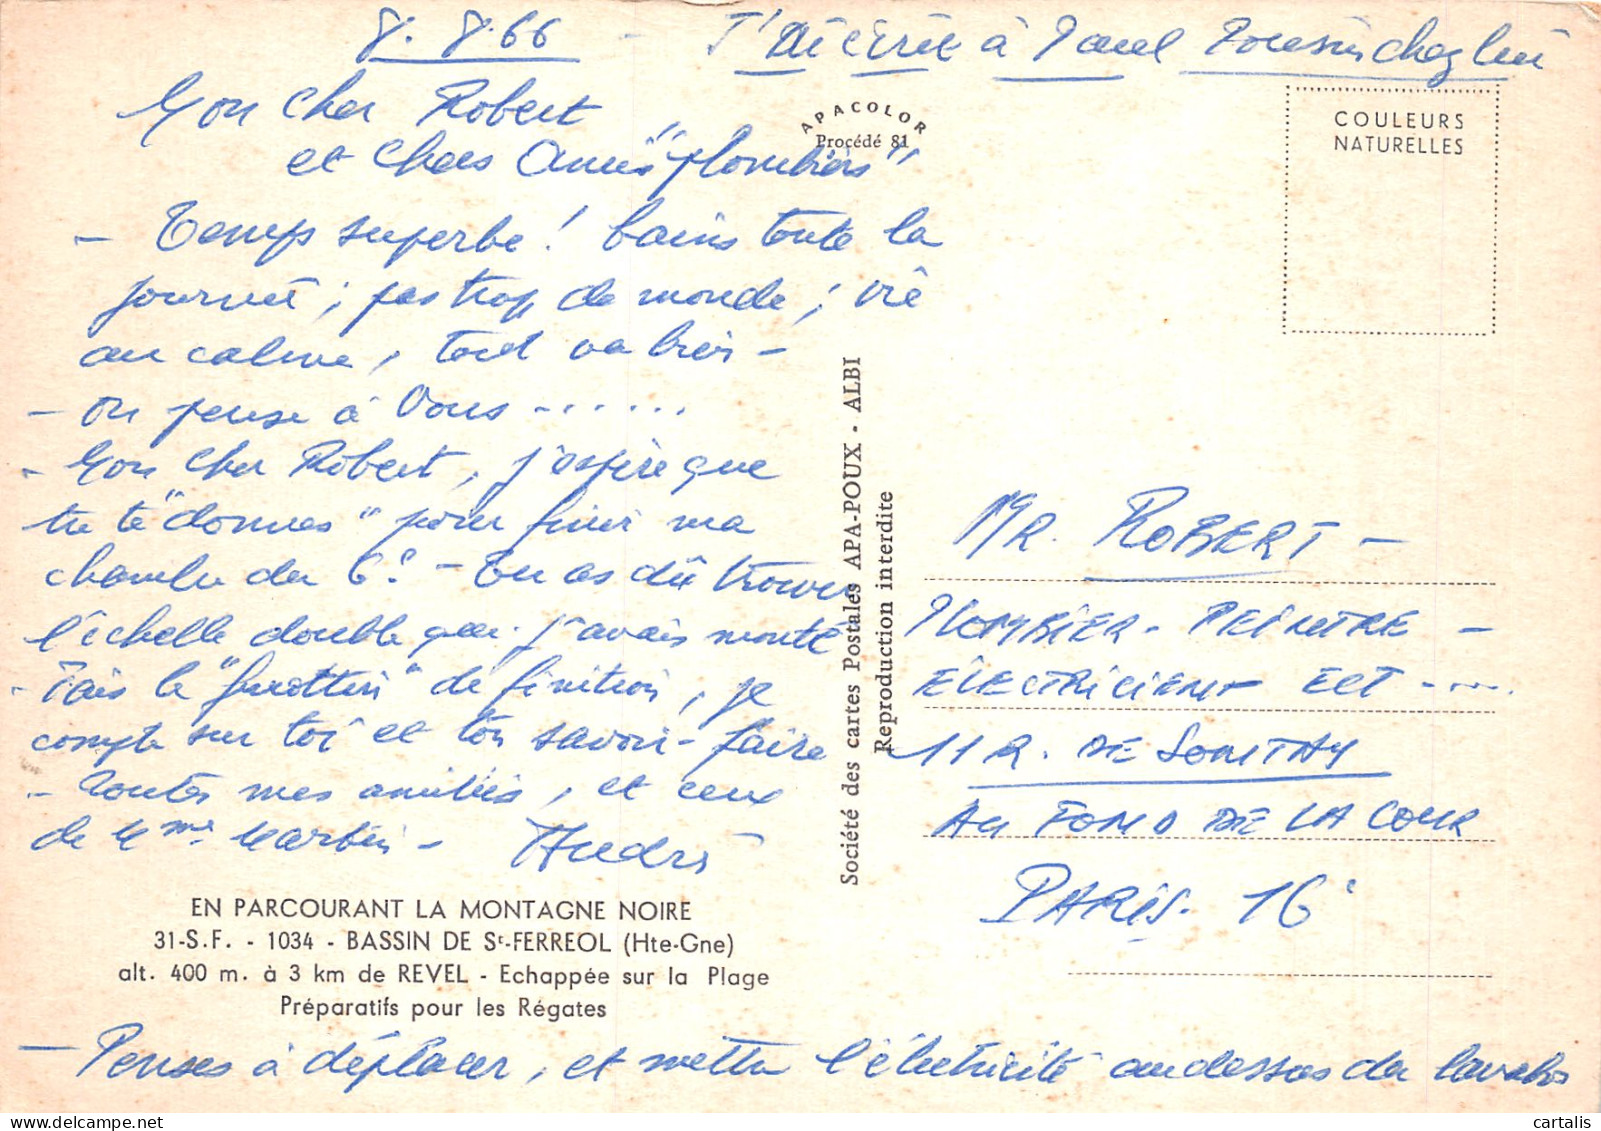 8.8.66 - J'ai écrit à Paul Tousin chez lui
Mon cher Robert
et chers Amis "plombiers"
- Temps superbe ! bains toute la
journée ; pas trop de monde ; vie
au calme, tout va bien -
- on pense à Vous - .....
- Mon cher Robert, j'espère que
tu te "donnes" pour finir ma
chambre du 6e ! - Tu as dû trouver
l'échelle double que j'avais monté
- Fais le "fignolage" de finition, je
compte sur toi et ton savoir-faire
- Toutes mes amitiés, et ceux
de Mme Martin - André
APACOLOR
Procédé 81
COULEURS
NATURELLES
Société des cartes Postales APA-POUX - ALBI
Reproduction interdite
MR. ROBERT -
PLOMBIER - PEINTRE -
ÉLECTRICIENT ECT - ....
11 R. DE SONTAY
AU FOND DE LA COUR
PARIS - 16e
EN PARCOURANT LA MONTAGNE NOIRE
31-S.F. - 1034 - BASSIN DE St-FERREOL (Hte-Gne)
alt. 400 m. à 3 km de REVEL - Echappée sur la Plage
Préparatifs pour les Régates
- Penses à déplacer, et mettre l'électricité au dessus du lavabo
cartalis